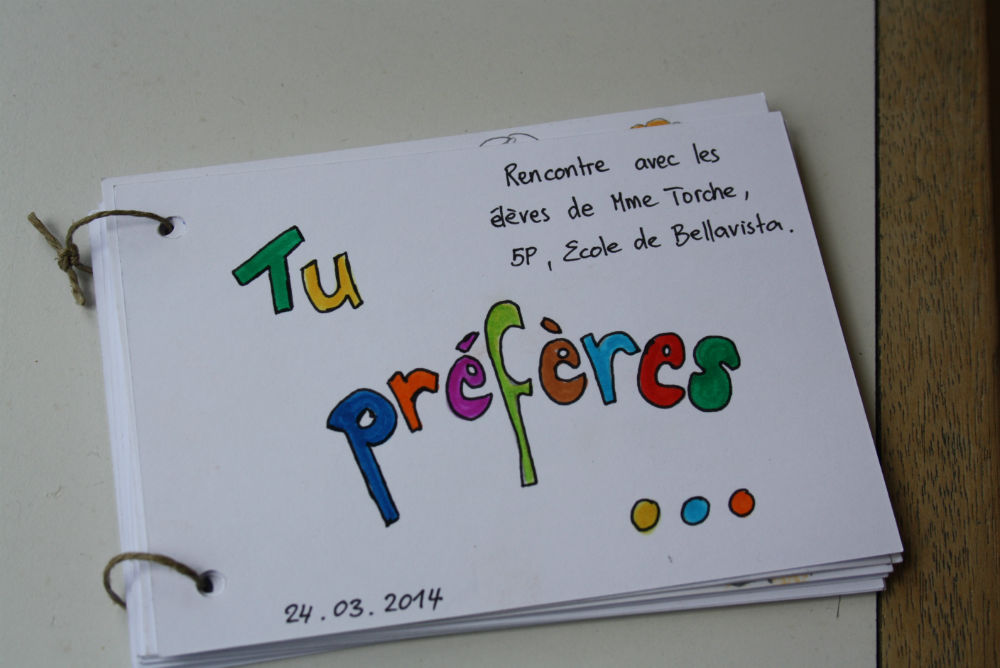 Rencontre avec les
élèves de Mme Torche,
5P, Ecole de Bellavista.
Tu
préfères
...
24.03.2014